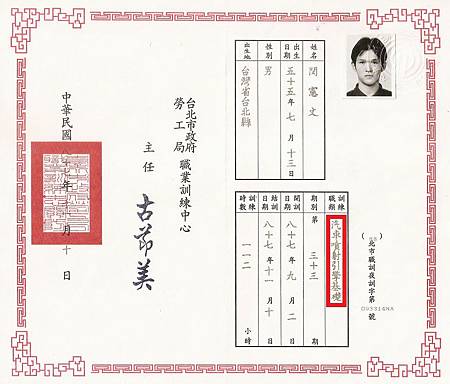 北市職訓夜訓字第 號
姓名 閔憲文
出生日期 五十五年七月十三日
性別 男
出生地 台灣省台北縣
訓練職類 汽車噴射引擎基礎
期別 第 三十三 期
開訓日期 八十七年九月二日
結訓日期 八十七年十一月十日
訓練時數 一一二 小時
台北市政府勞工局職業訓練中心
主任 古節美
中華民國 十七年 月十日